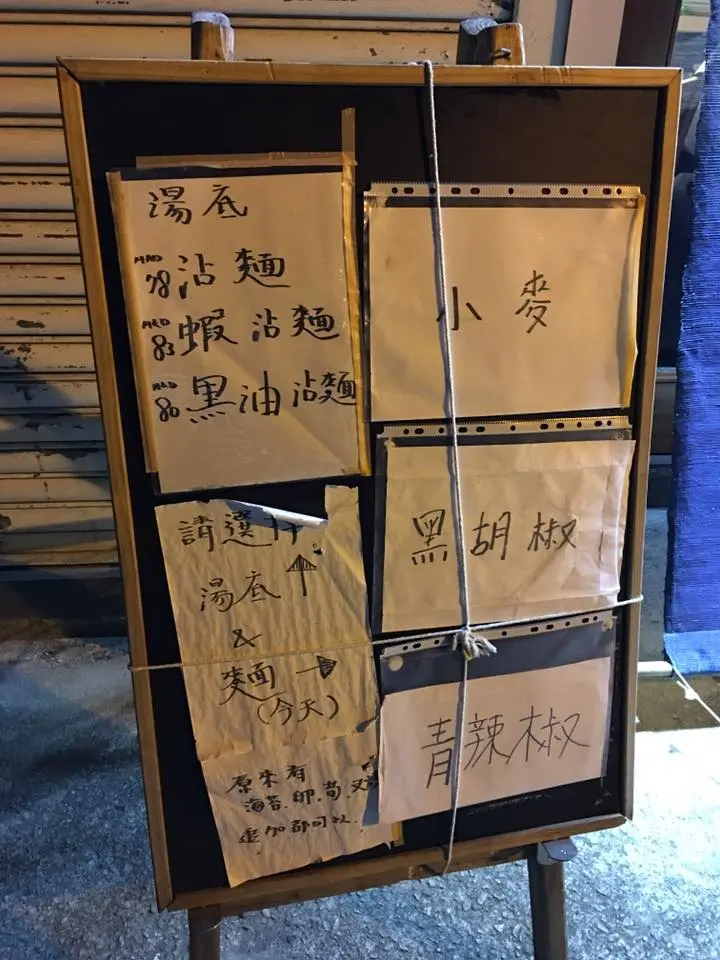 湯底
HKD 78 沾麵
HKD 83 蝦沾麵
HKD 80 黑油沾麵
請選擇
湯底 ↑
&
麵 →
(今天)
原來有
海苔.卵.筍.叉燒
追加都可以.
小麥
黑胡椒
青辣椒